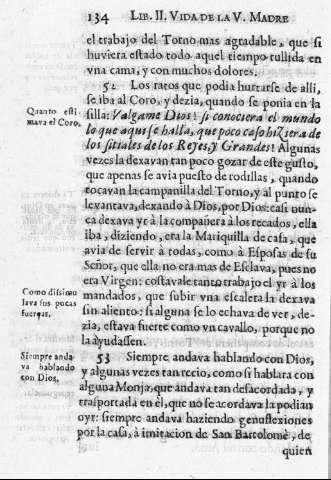 134 LIB. II. VIDA DE LA V. MADRE
el trabajo del Torno mas agradable, que si
huviera estado todo aquel tiempo tullida en
vna cama, y con muchos dolores.
52 Los ratos que podia hurtarse de alli,
se iba al Coro, y dezia, quando se ponia en la
Quanto esti-
mava el Coro.
silla: Valgame Dios! si conociera el mundo
lo que aqui se halla, que poco caso hiziera de
los sitiales de los Reyes, y Grandes! Algunas
vezes la dexavan tan poco gozar de este gusto,
que apenas se avia puesto de rodillas, quando
tocavan la campanilla del Torno, y al punto se
levantava, dexando à Dios, por Dios: casi nun-
ca dexava yr à la compañera à los recados, ella
iba, diziendo, era la Mariquilla de casa, que
avia de servir à todas, como à Esposas de su
Señor, que ella no era mas de Esclava, pues no
era Virgen: costavale tanto trabajo el yr à los
Como disimu
lava sus pocas
fuerças.
mandados, que subir vna escalera la dexava
sin aliento: si alguna se lo echava de ver, de-
zia, estava fuerte como vn cavallo, porque no
la ayudassen.
Siempre anda
va hablando
con Dios.
53 Siempre andava hablando con Dios,
y algunas vezes tan recio, como si hablara con
alguna Monja, que andava tan desacordada, y
trasportada en èl, que no se acordava la podian
oyr: siempre andava haziendo genuflexiones
por la casa, à imitacion de San Bartolomè, de
quien